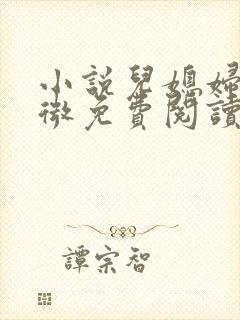 小說兒媳婦
微免費閱讀
譚宗智